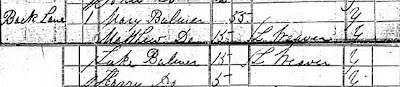 Back Lane 1 Mary Bulmer 55 Y
Matthew Do 15 L Weaver Y
Luke Bulmer 15 L Weaver Y
Harry Do 5 Y